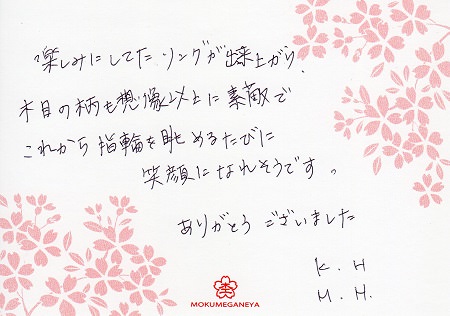 楽しみにしてたリングが出来上がり、
木目の柄も想像以上に素敵で
これから指輪を眺めるたびに
笑顔になれそうです。
ありがとうございました
K.H
M.H.
MOKUMEGANEYA